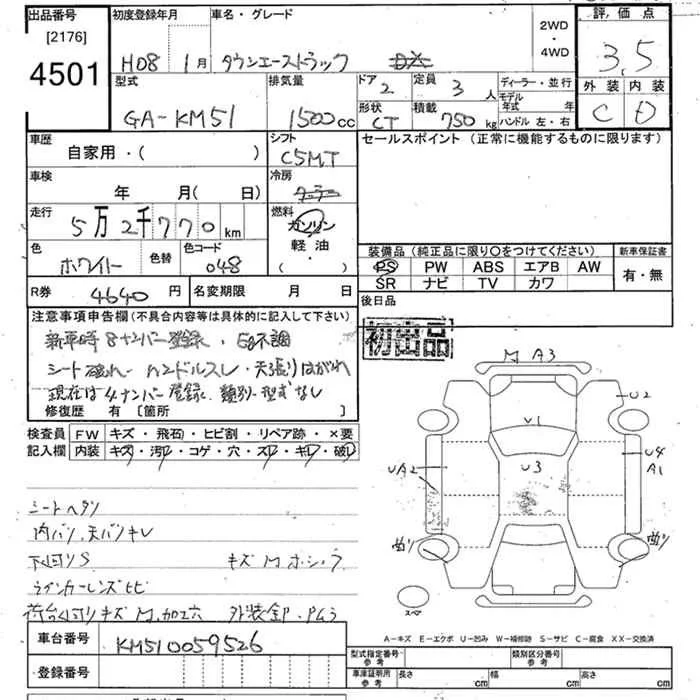 出品番号
[2176]
4501
初度登録年月
H08 1月
車名・グレード
タウンエーストラック DX
2WD
・
4WD
評価点
3.5
外装 内装
C D
型式
GA-KM51
排気量
1500cc
ドア
2
定員
3人
形状
CT
積載
750kg
ディーラー・並行
モデル年式 年
ハンドル 左・右
車歴
自家用・( )
シフト
C5MT
セールスポイント (正常に機能するものに限ります)
車検
年 月( 日)
冷房
クーラー
走行
5万2千770km
燃料
ガソリン
軽油・
( )
色
ホワイト
色替
色コード
048
装備品 (純正品に限り○をつけてください)
PS PW ABS エアB AW
SR ナビ TV カワ
新車保証書
有・無
R券
4640円
名変期限 月 日
後日品
注意事項申告欄(不具合内容等は具体的に記入して下さい)
新車時8ナンバー登録、Eg不調
シート破れ・ハンドルスレ・天張りはがれ
現在は4ナンバー登録、類別・型式なし
修復歴 有 [箇所 ]
初出品
検査員記入欄
FW キズ・飛石・ヒビ割・リペア跡・×要
内装 キズ・汚レ・コゲ・穴・スレ・キレ・破レ
シートヘタリ
内バリ、天バリキレ
下回りS キズ M
ウインカーレンズヒビ
荷台回りキズ M、加工穴
M A3
U2
U1
UA2
U3
U4
A1
曲り
曲り
スペア
A－キズ E－エクボ U－凹み W－補修跡 S－サビ C－腐食 XX－交換済
車台番号
KM510059526
登録番号
型式指定番号
参考
類別区分番号
参考
車庫証明用
参考
長さ cm 幅 cm 高さ cm